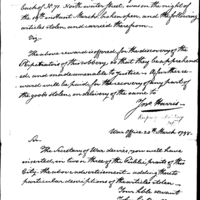 Euch of No 71. North Water Street, was on the night of
the 19th instant March broken open, and the following
articles stolen and carried therefrom
Viz.
The above reward is offered, for the discovery of the
Perpetrators of the robbery, so that they can be apprehend-
ed, and made amenable to justice. A further re-
ward will be paid for the recovery of any part of
the goods stolen, on delivery of the same to
Jos. Harris
War Office 20th March 1798.
Sir,
The Secretary of War desires, you will have
inserted, in two or three of the Public prints of this
City, the above advertisement, adding thereto
particular descriptions of the articles stolen.
Your hble servant